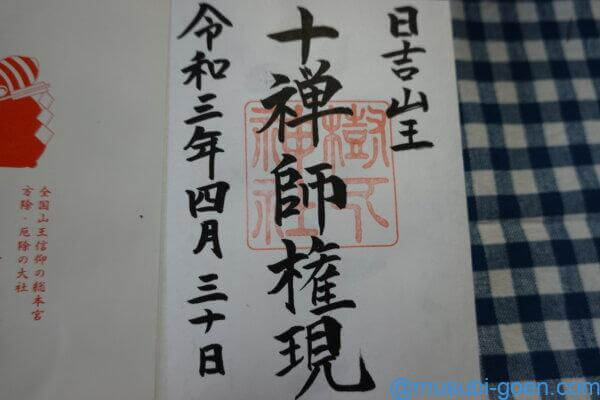 日吉山王
十禅師権現
樹下
神社
令和三年四月三十日
全国山王信仰の総本宮
方除・厄除の大社
@musubi-goen.com